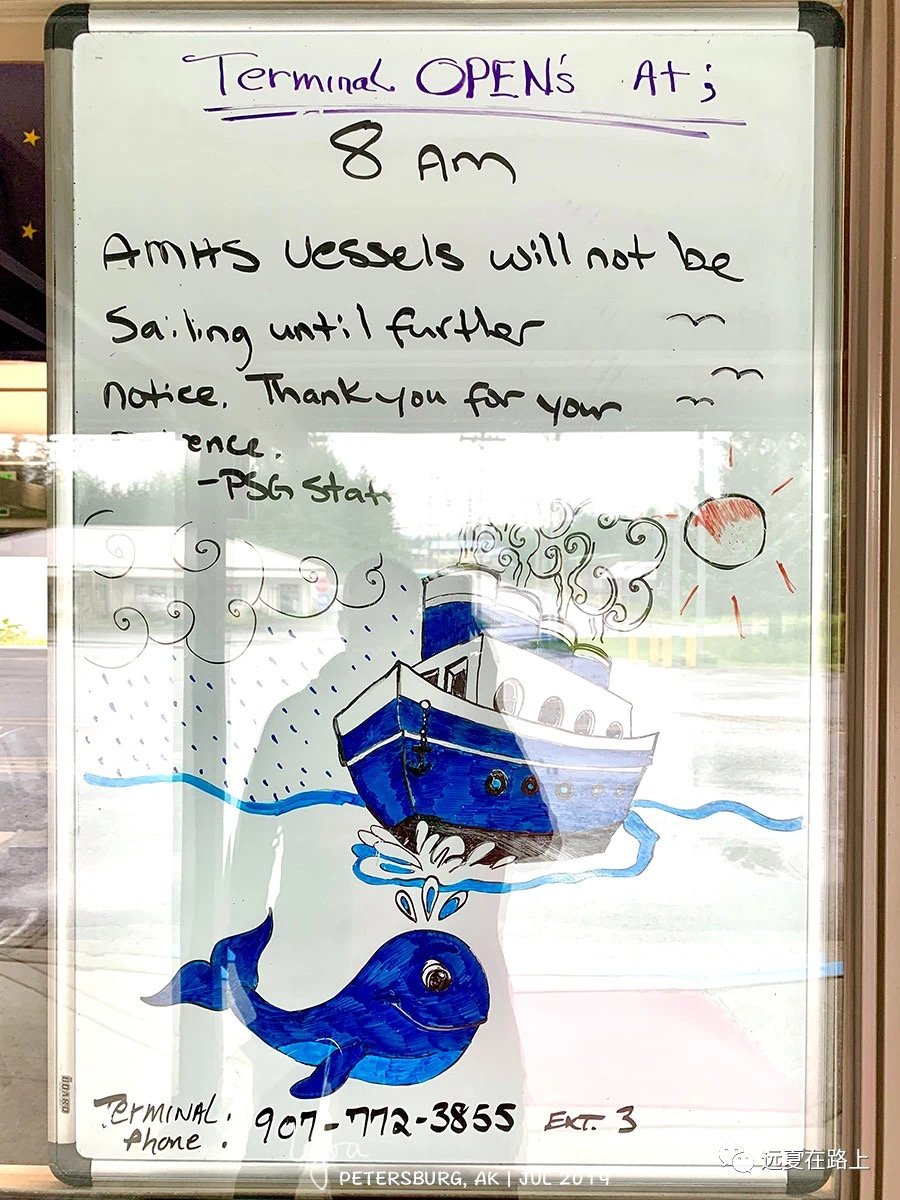 Terminal OPEN's At;
8 Am
AMHS Vessels will not be
Sailing until further
notice. Thank you for your
-PSG
TERMINAL
Phone :
907-772-3855 EXT. 3
QUARO
PETERSBURG, AK | JUL 2019
远夏在路上